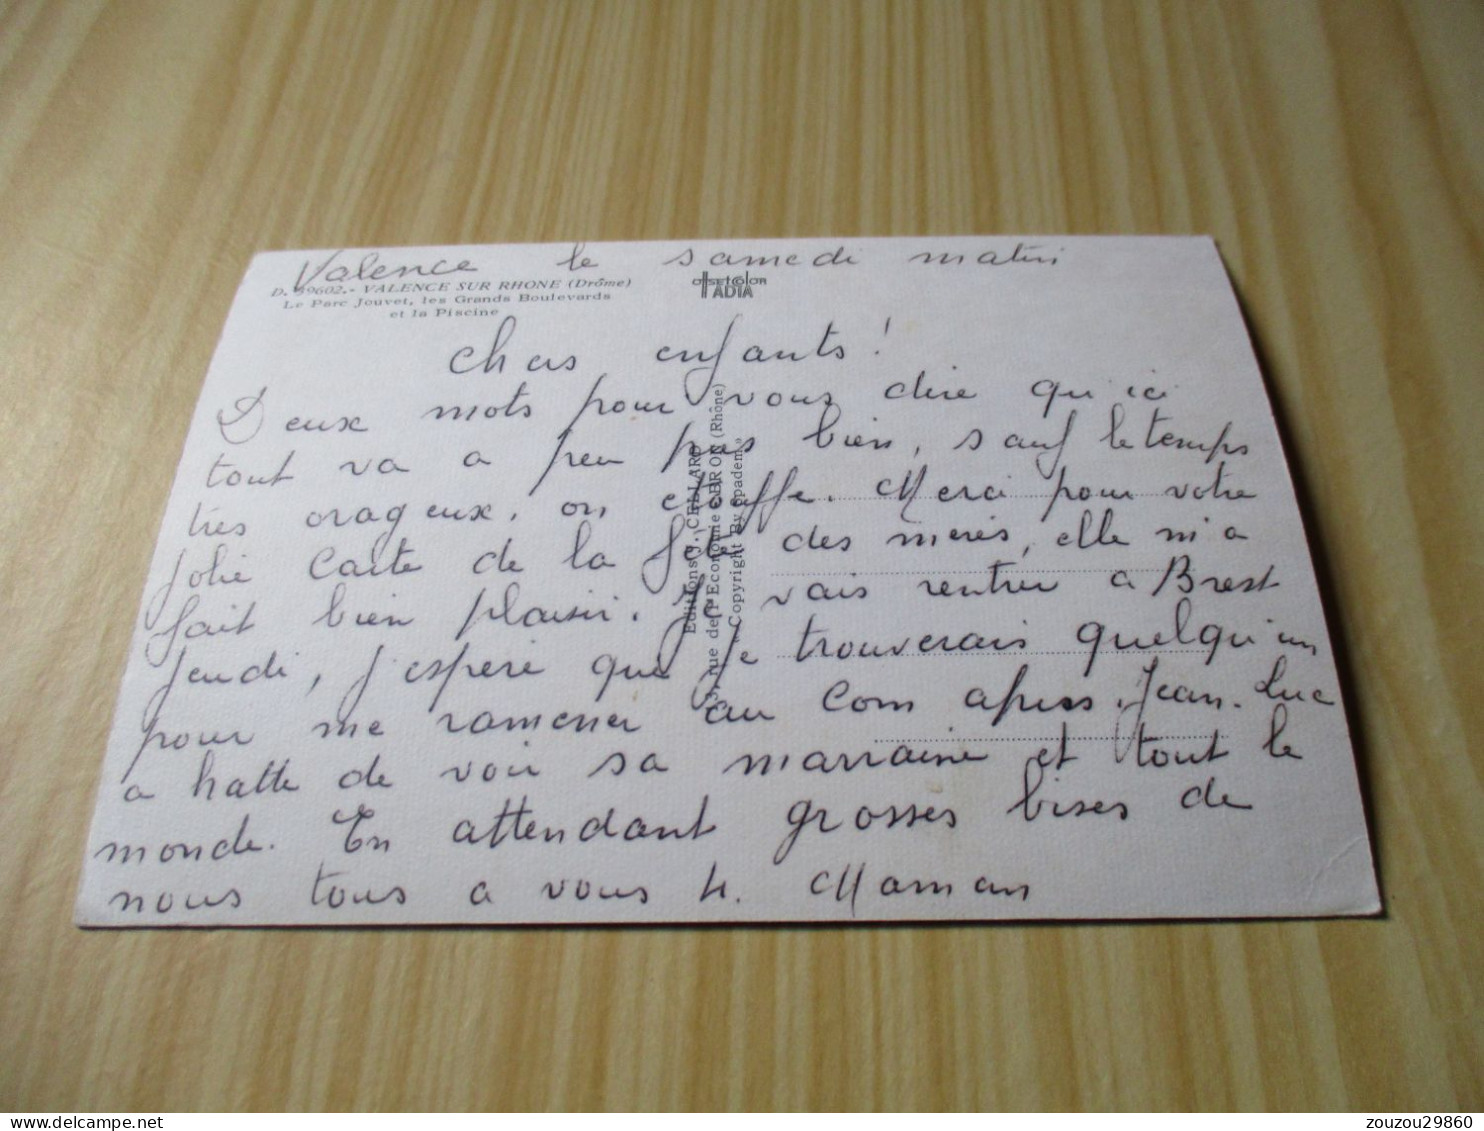 Valence le samedi matin
D. 59602. - VALENCE SUR RHONE (Drôme)
Le Parc Jouvet, les Grands Boulevards
et la Piscine
offsetcolor
IADIA
Chers enfants !
Deux mots pour vous dire qu'ici
tout va a peu près bien, sauf le temps
très orageux, on étouffe. Merci pour votre
jolie carte de la fête des mères, elle m'a
fait bien plaisir. Je vais rentrer a Brest
jeudi, j'espère que je trouverais quelqu'un
pour me ramener au Com après. Jean-Luc
a hatte de voir sa marraine et tout le
monde. En attendant grosses bises de
nous tous a vous 4. Maman
Editions J. CELLARD
rue de l'Economie - BRON (Rhône)
« Copyright by Spadem »
delcampe.net
zouzou29860